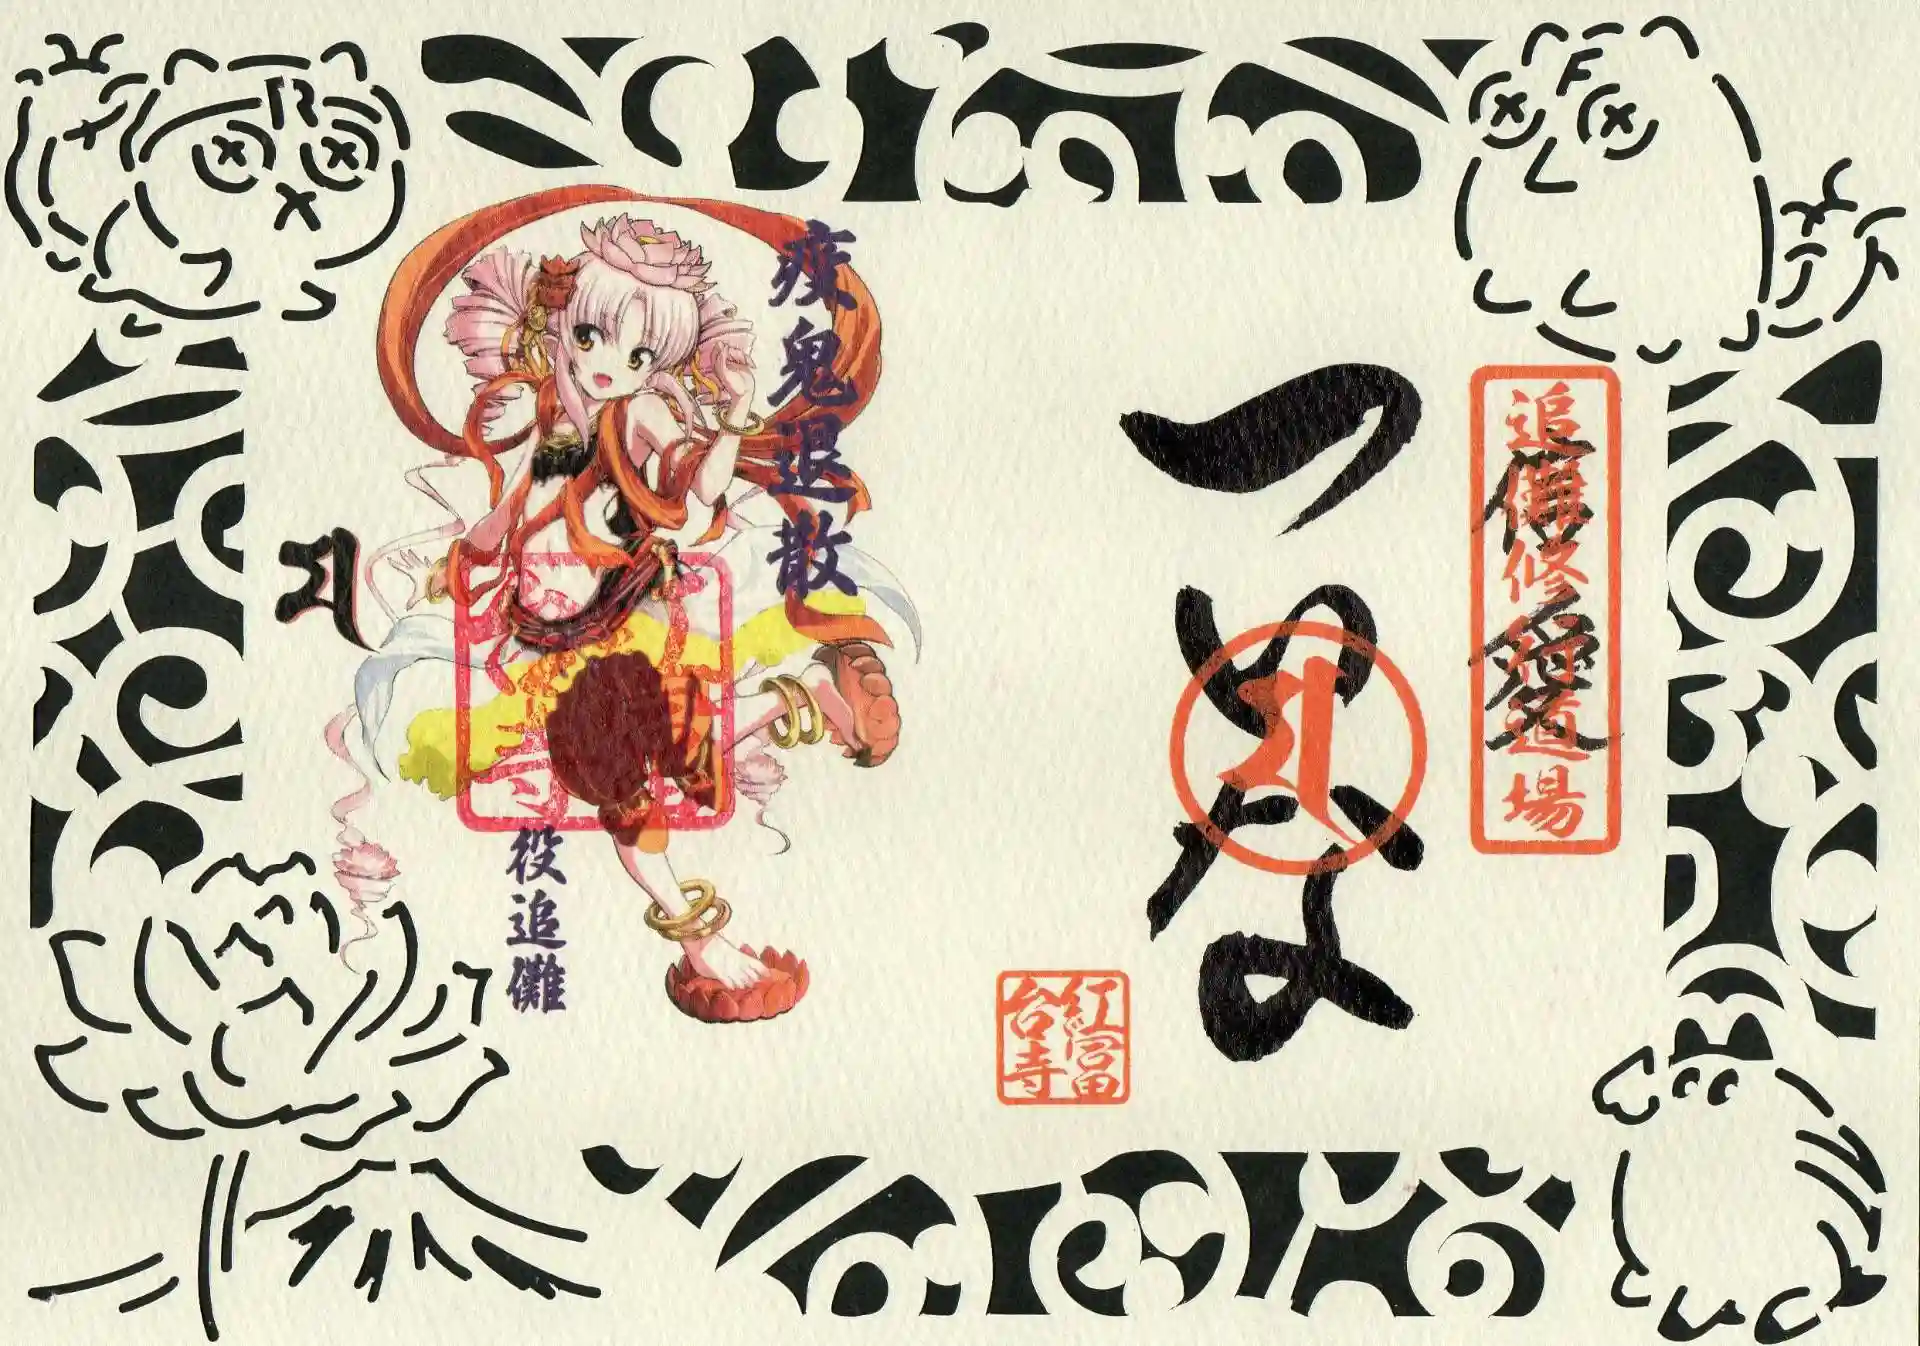 追儺修 道場
ついな
紅富台寺
疫鬼退散
役追儺